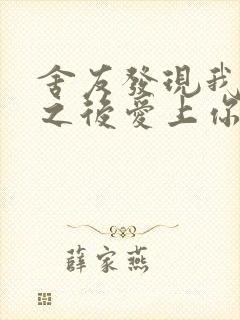 舍友發現我
之後愛上你
薛家燕